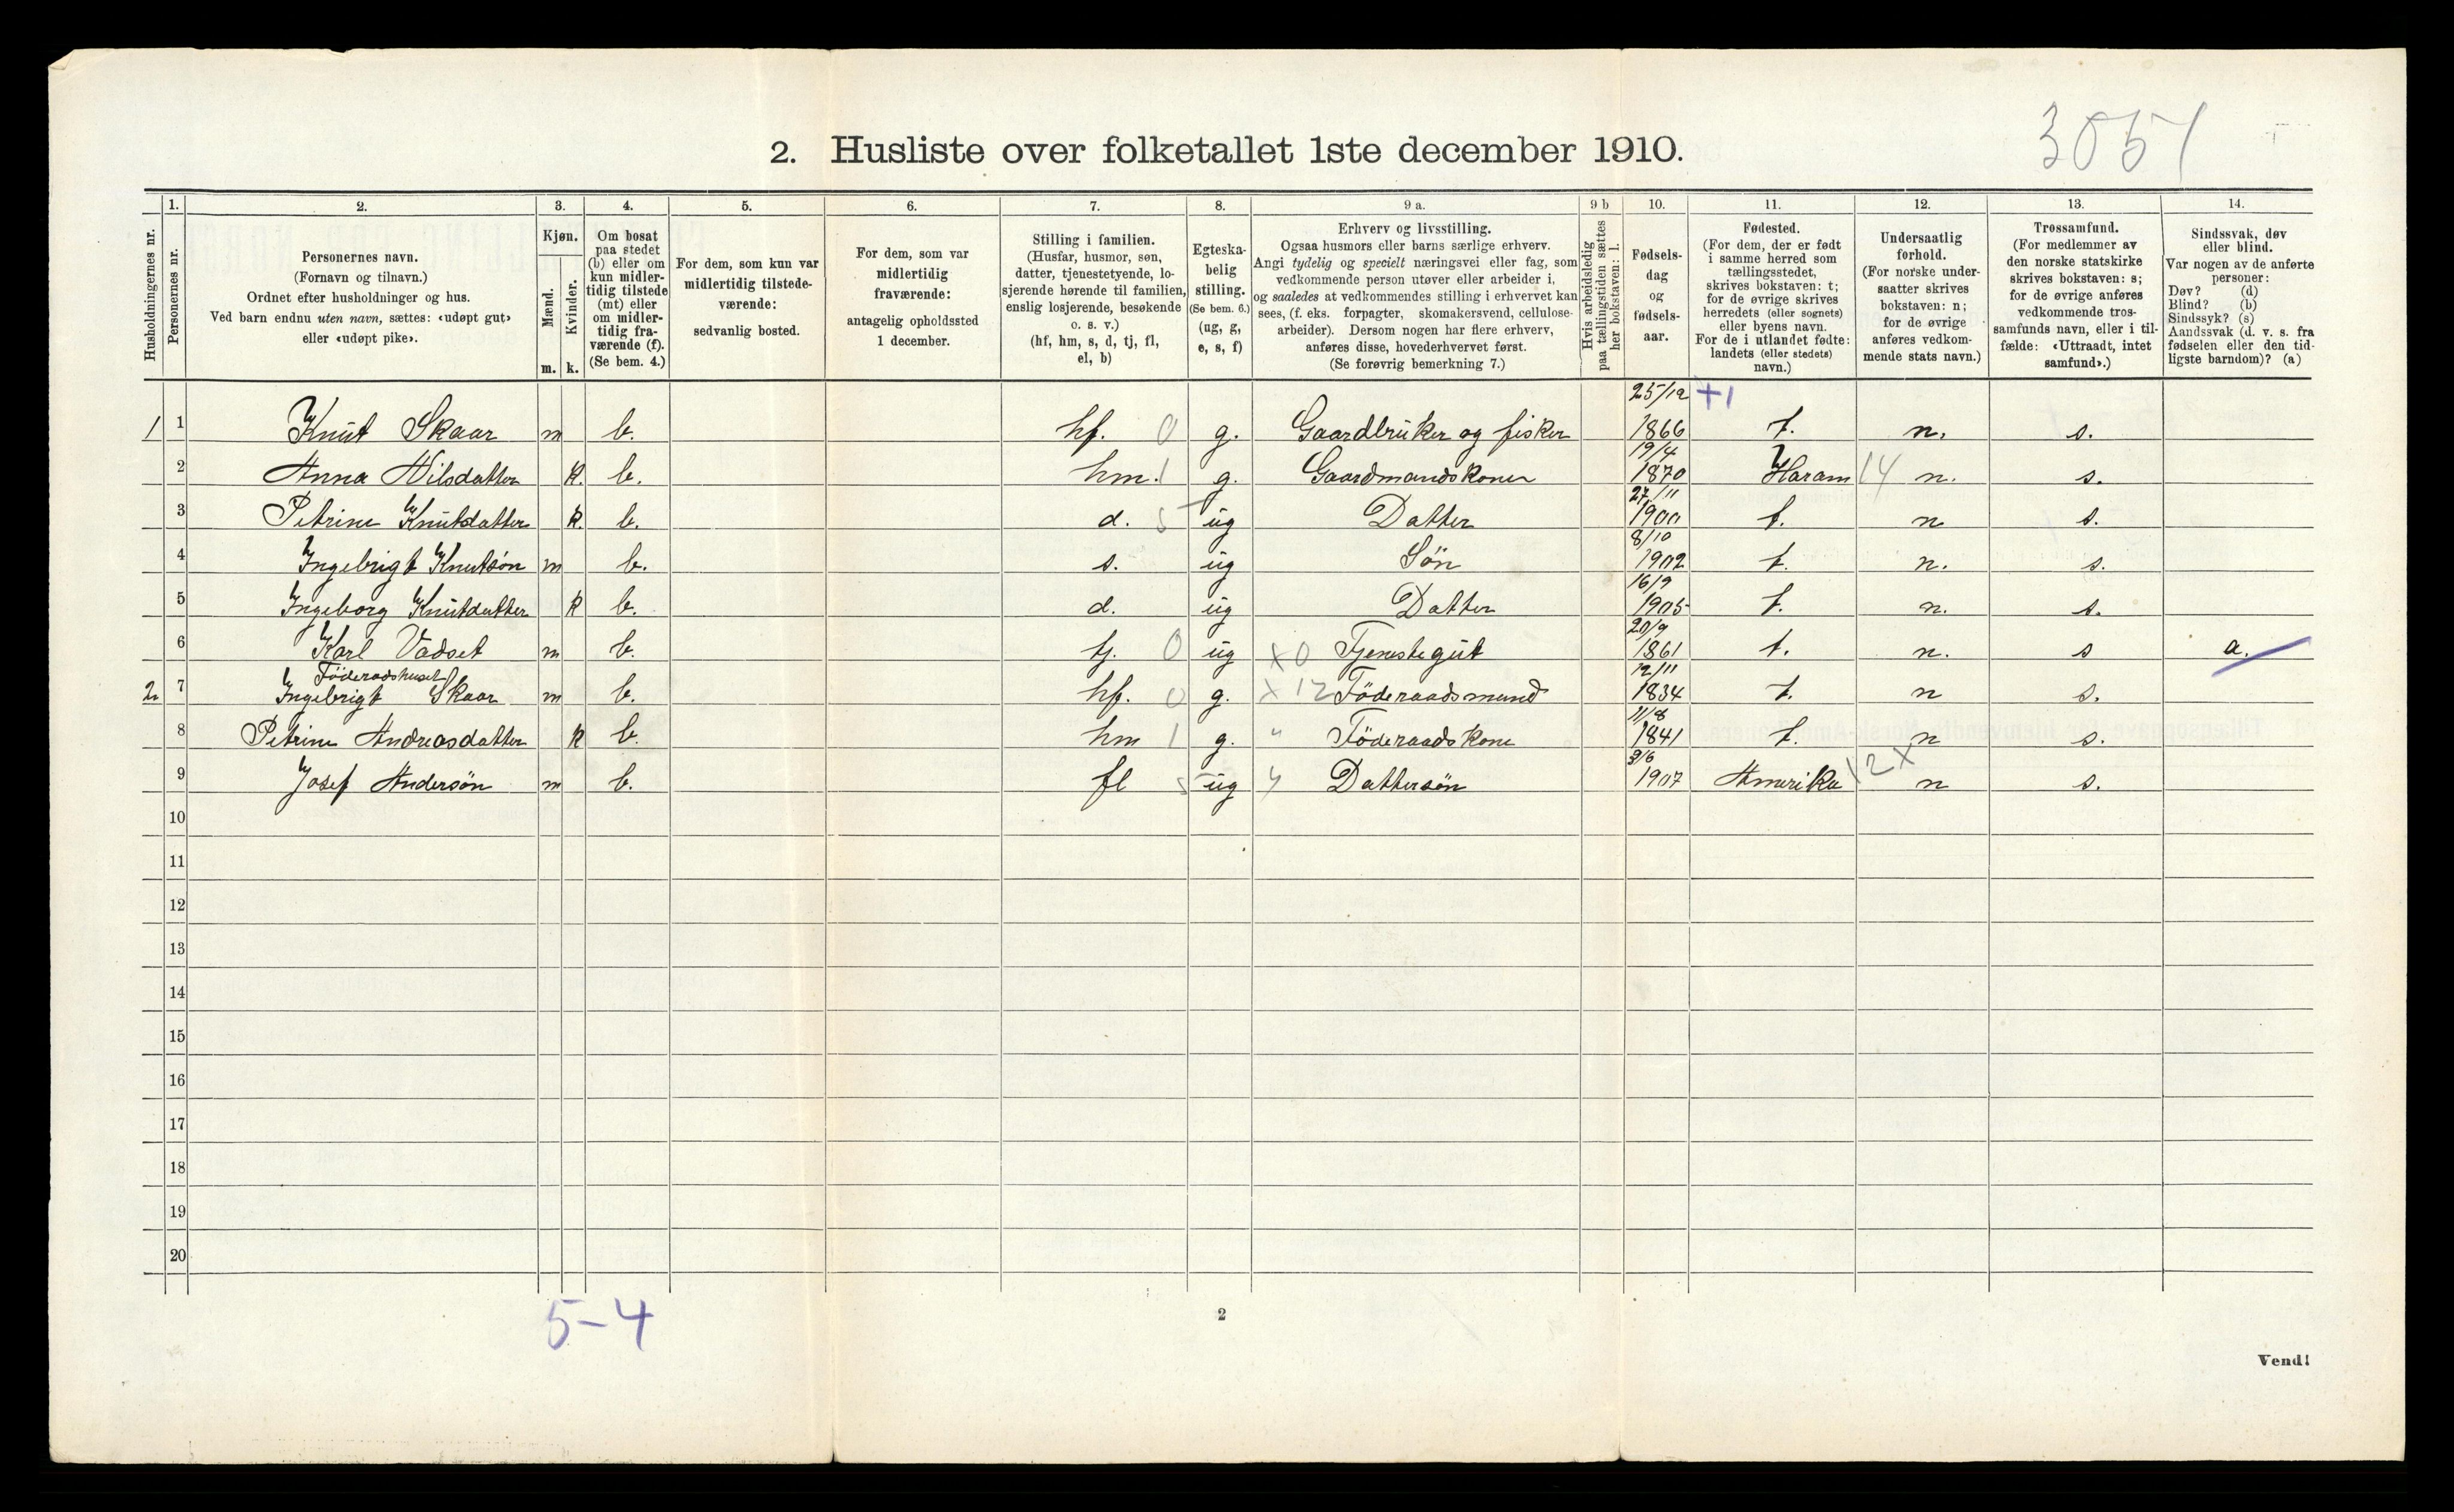 3051
2. Husliste over folketallet 1ste december 1910.
Husholdningernes nr.
1. Personernes nr.
2. Personernes navn.
(Fornavn og tilnavn.)
Ordnet efter husholdninger og hus.
Ved barn endnu uten navn, sættes: «udøpt gut»
eller «udøpt pike».
3. Kjøn.
Mænd. Kvinder.
m. k.
4. Om bosat
paa stedet
(b) eller om
kun midler-
tidig tilstede
(mt) eller
om midler-
tidig fra-
værende (f).
(Se bem. 4.)
5. For dem, som kun var
midlertidig tilstede-
værende:
sedvanlig bosted.
6. For dem, som var
midlertidig
fraværende:
antagelig opholdssted
1 december.
7. Stilling i familien.
(Husfar, husmor, søn,
datter, tjenestetyende, lo-
sjerende hørende til familien,
enslig losjerende, besøkende
o. s. v.)
(hf, hm, s, d, tj, fl,
el, b)
8. Egteska-
belig
stilling.
(Se bem. 6.)
(ug, g,
e, s, f)
9 a. Erhverv og livsstilling.
Ogsaa husmors eller barns særlige erhverv.
Angi tydelig og specielt næringsvei eller fag, som
vedkommende person utøver eller arbeider i,
og saaledes at vedkommendes stilling i erhvervet kan
sees, (f. eks. forpagter, skomakersvend, cellulose-
arbeider). Dersom nogen har flere erhverv,
anføres disse, hovederhvervet først.
(Se forøvrig bemerkning 7.)
9 b Hvis arbeidsledig
paa tællingstiden sættes
her bokstaven: l.
10. Fødsels-
dag
og
fødsels-
aar.
11. Fødested.
(For dem, der er født
i samme herred som
tællingsstedet,
skrives bokstaven: t;
for de øvrige skrives
herredets (eller sognets)
eller byens navn.
For de i utlandet fødte:
landets (eller stedets)
navn.)
12. Undersaatlig
forhold.
(For norske under-
saatter skrives
bokstaven: n;
for de øvrige
anføres vedkom-
mende stats navn.)
13. Trossamfund.
(For medlemmer av
den norske statskirke
skrives bokstaven: s;
for de øvrige anføres
vedkommende tros-
samfunds navn, eller i til-
fælde: «Uttraadt, intet
samfund».)
14. Sindssvak, døv
eller blind.
Var nogen av de anførte
personer:
Døv? (d)
Blind? (b)
Sindssyk? (s)
Aandssvak (d. v. s. fra
fødselen eller den tid-
ligste barndom)? (a)
1 1 Knut Skaar m b. hf. 0 g. Gaardbruker og fisker 25/12 1866 +1 t. n. s.
2 Anna Nilsdatter k. b. hm. 1 g. Gaardmandskone 19/4 1870 Haram 14 n. s.
3 Petrine Knutsdatter k. b. d. 5 ug Datter 27/11 1900 t. n s.
4 Ingebrigt Knutsøn m b. s. ug Søn 8/10 1902 t. n. s.
5 Ingeborg Knutdatter k b. d. ug Datter 16/9 1905 t. n. s.
6 Karl Vadset m b. tj. 0 ug x0 Tjenestegut 20/9 1861 t. n. s a.
Föderaadshuset
2 7 Ingebrigt Skaar m b. hf. 0 g. x 12 Föderaadsmand 12/11 1834 t. n s.
8 Petrine Andreasdatter k b. hm 1 g. " Föderaadskone 11/8 1841 t. n s.
9 Josef Andersön m b. fl 5 ug Dattersön 9/6 1907 Amerika 12 x n s.
10
11
12
13
14
15
16
17
18
19
20
5-4
2
Vend!